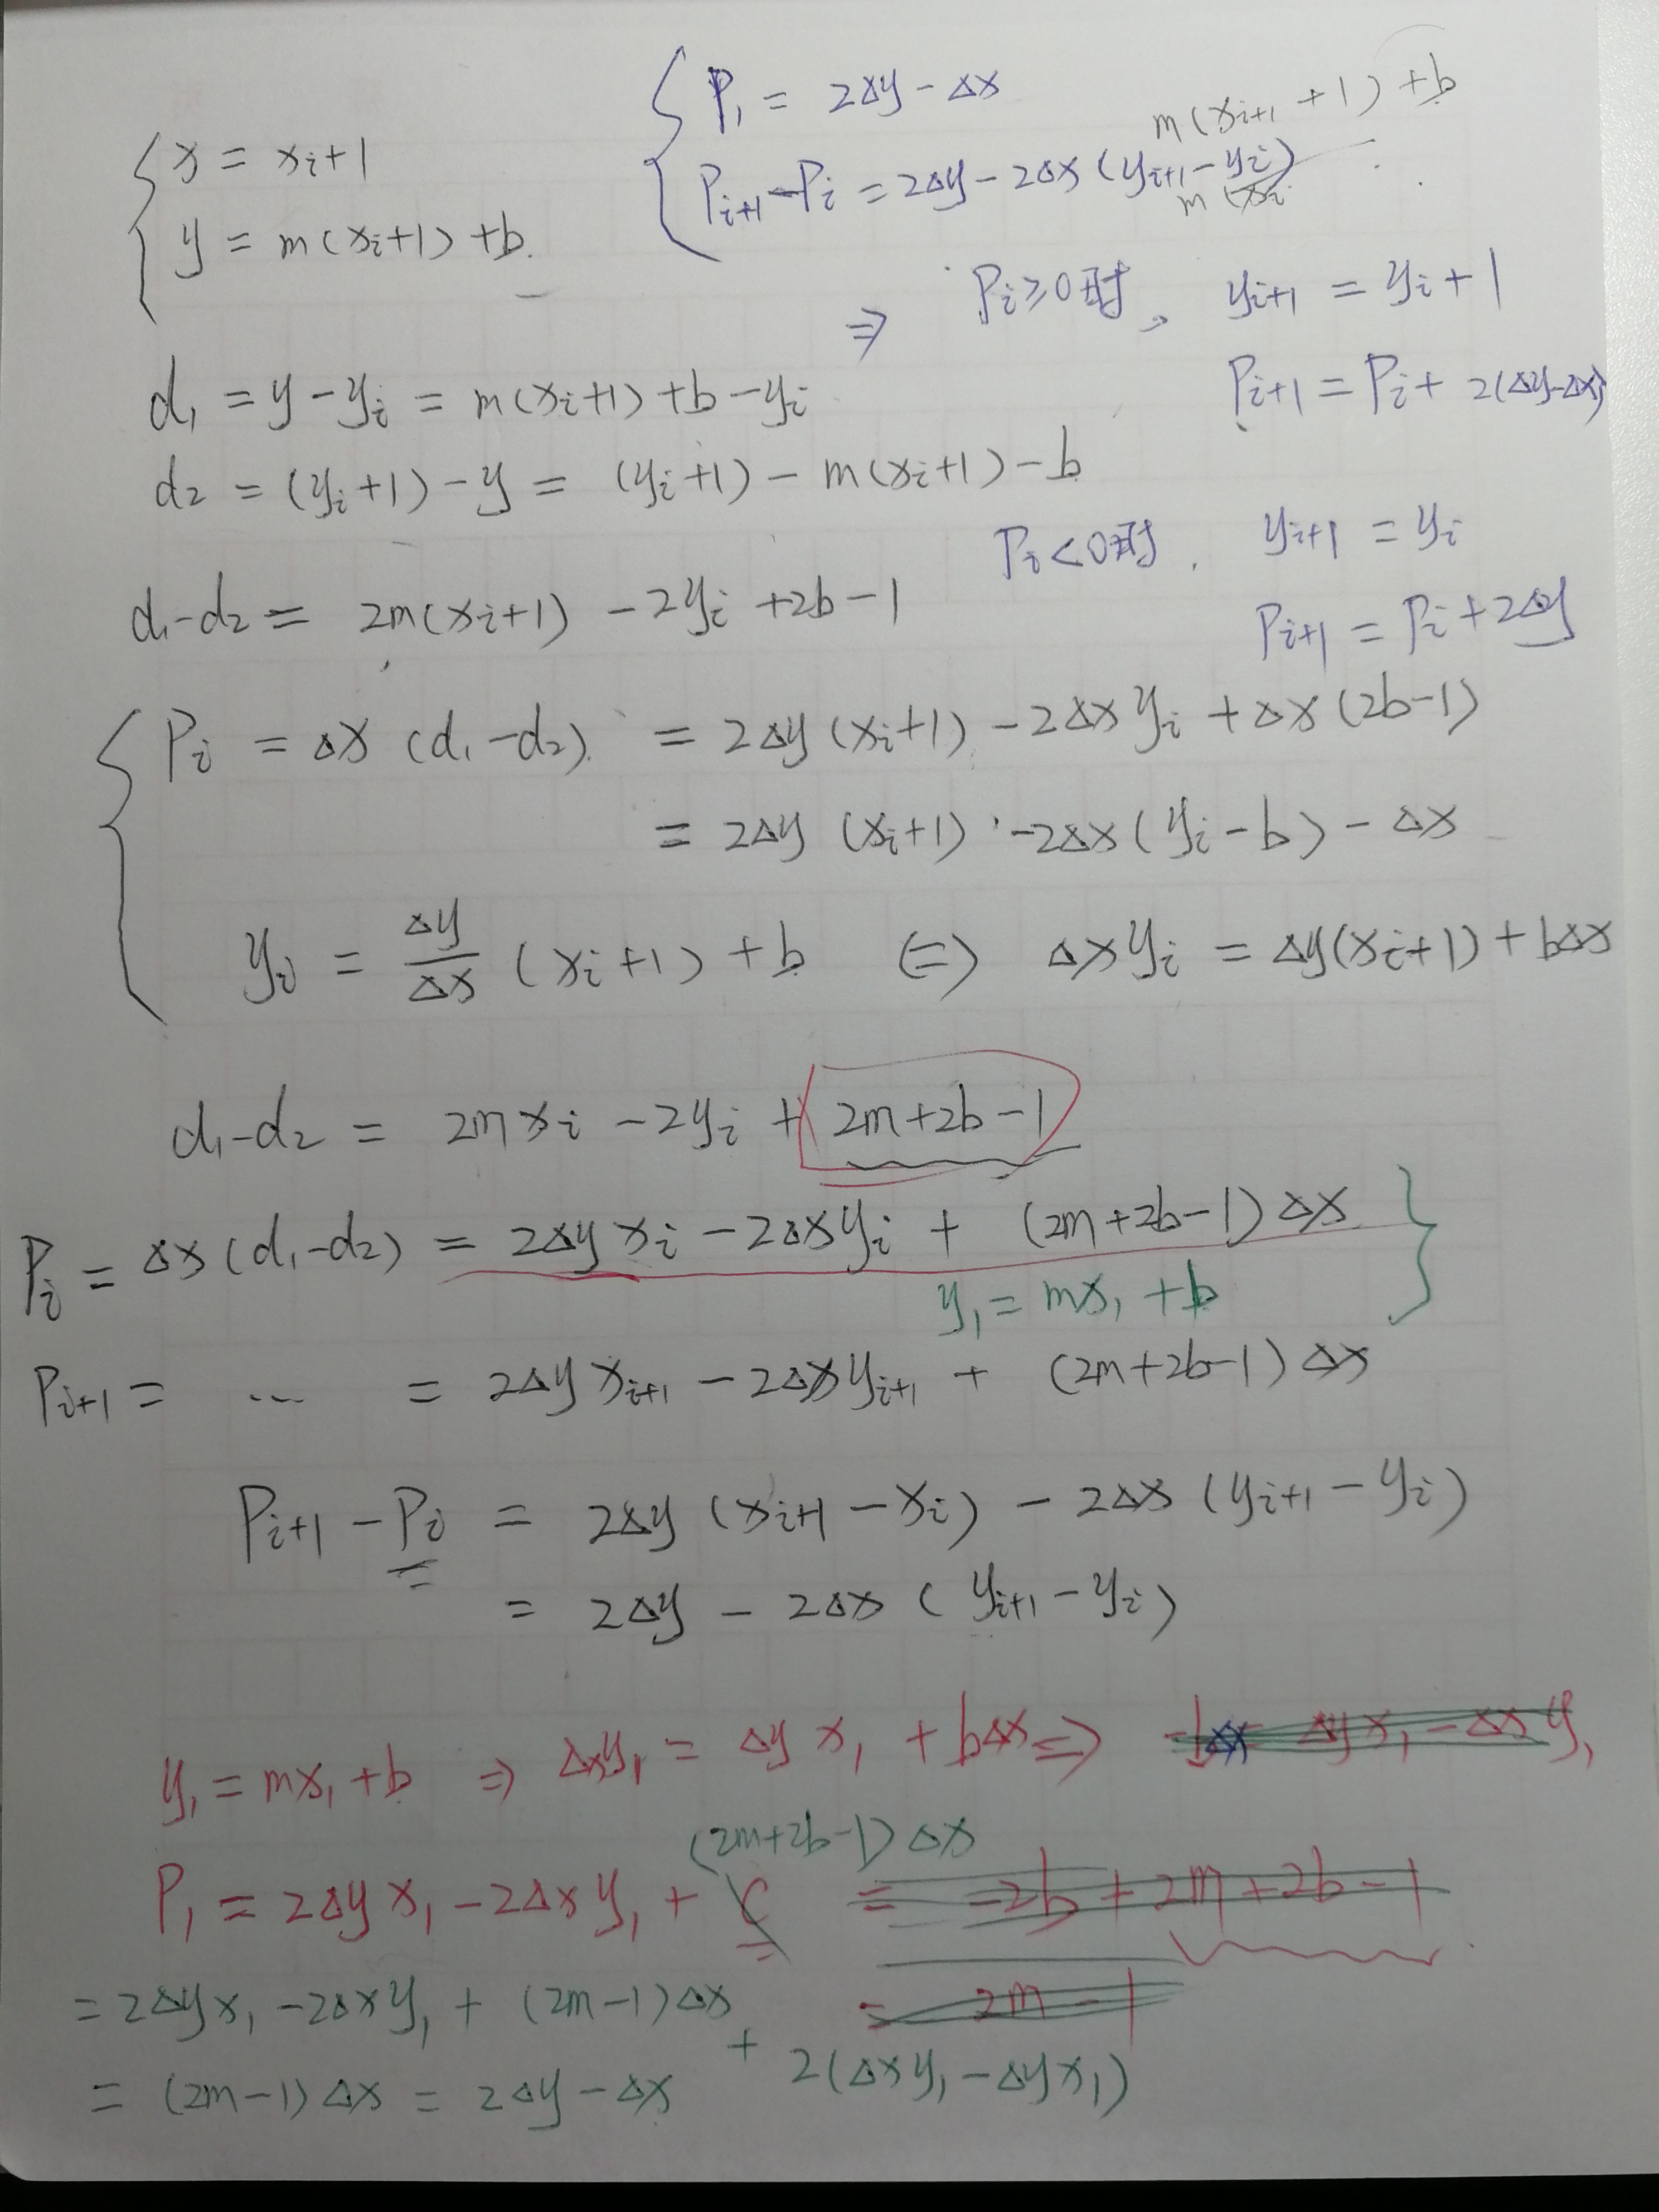 x = xi+1
y = m(xi+1)+b.
P₁ = 2Δy-Δx
m(xi+1 +1)+b
Pi+1-Pi = 2Δy-2Δx(yi+1-yi)
m(xi
⇒ Pi≥0时, yi+1 = yi+1
Pi+1 = Pi+ 2(Δy-Δx)
d₁ = y-yi = m(xi+1)+b-yi
d₂ = (yi+1)-y = (yi+1)-m(xi+1)-b
Pi<0时, yi+1 = yi
Pi+1 = Pi+2Δy
d₁-d₂ = 2m(xi+1) -2yi +2b-1
Pi = Δx (d₁-d₂) = 2Δy(xi+1)-2Δxyi+Δx(2b-1)
= 2Δy (xi+1) -2Δx(yi-b)-Δx
yi = Δy/Δx (xi+1)+b ⇔ Δxyi = Δy(xi+1)+bΔx
d₁-d₂ = 2mxi -2yi + 2m+2b-1
Pi = Δx(d₁-d₂) = 2Δyxi-2Δxyi+ (2m+2b-1)Δx
y₁ = mx₁+b
Pi+1 = ... = 2Δyxi+1-2Δxyi+1+ (2m+2b-1)Δx
Pi+1-Pi = 2Δy(xi+1-xi)-2Δx(yi+1-yi)
= 2Δy - 2Δx (yi+1-yi)
y₁ = mx₁+b ⇒ Δxy₁ = Δyx₁ +bΔx ⇒ -bΔx= Δyx₁-Δxy₁
(2m+2b-1)Δx
P₁ = 2Δyx₁-2Δxy₁+ C = -2b+2m+2b-1
= 2Δyx₁-2Δxy₁+(2m-1)Δx = 2m-1
+ 2(Δxy₁-Δyx₁)
= (2m-1)Δx = 2Δy-Δx